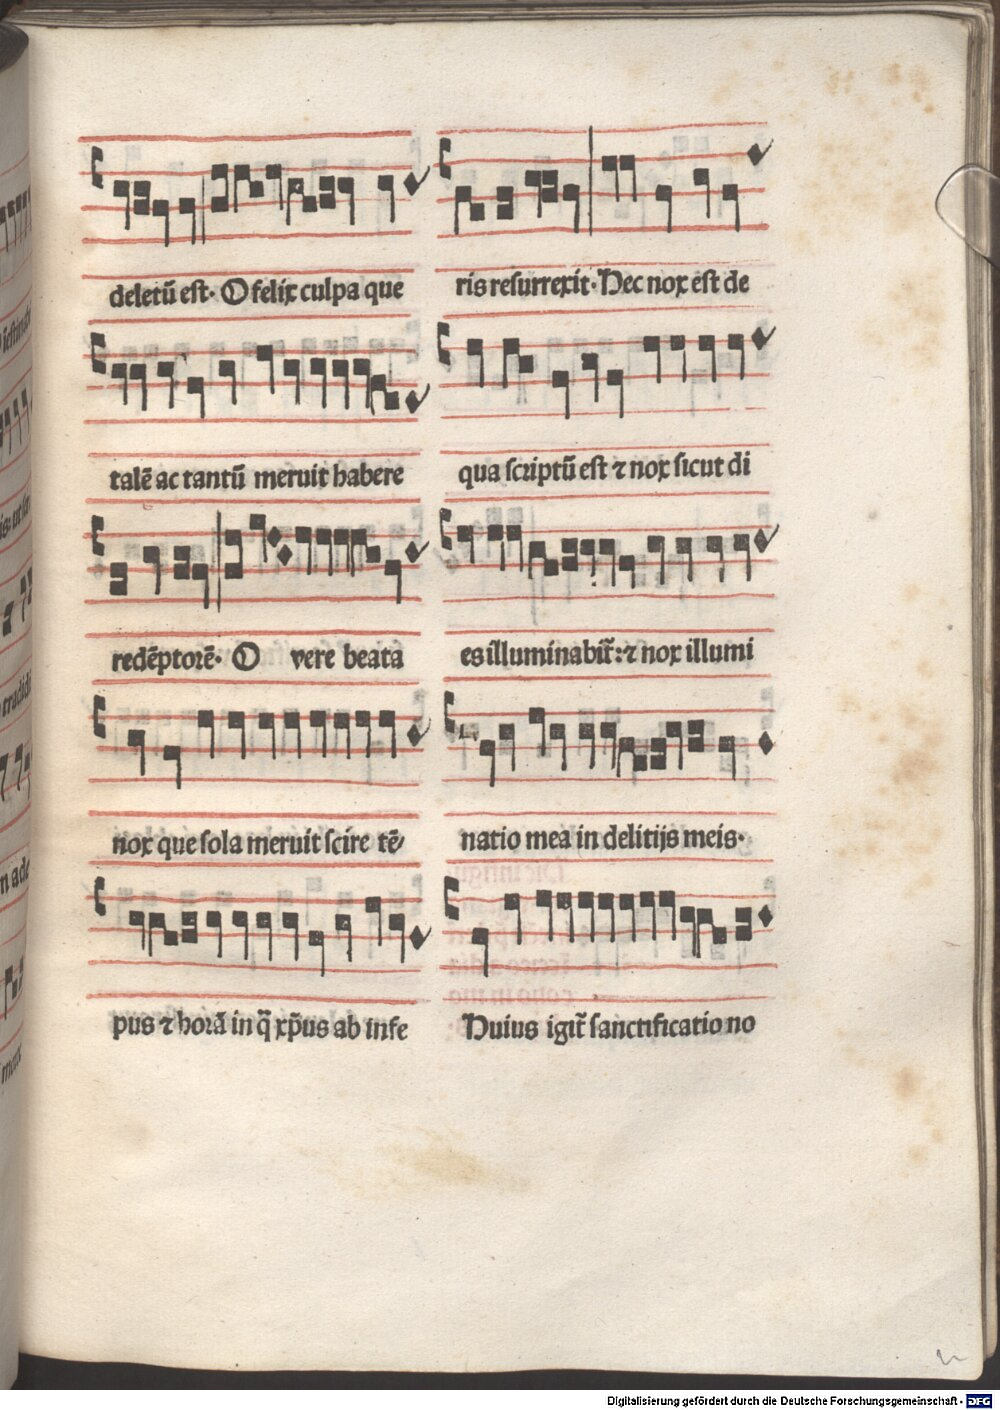 deletū est· O felix culpa que
talē ac tantū meruit habere
redēptorē· O vere beata
nox que sola meruit scire tē/
pus ⁊ horā in q̄ xp̄us ab infe
ris resurrexit· Hec nox est de
qua scriptū est ⁊ nox sicut di
es illuminabit᷑: ⁊ nox illumi
natio mea in delitijs meis·
Huius igit᷑ sanctificatio no
Digitalisierung gefördert durch die Deutsche Forschungsgemeinschaft - DFG